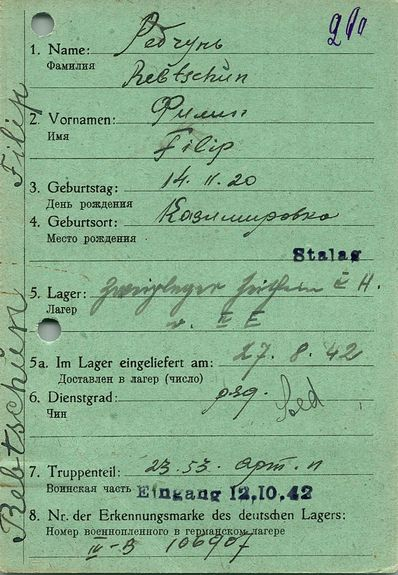 210
1. Name: Ребчунь
Фамилия
Rebtschun
2. Vornamen: Филип
Имя
Filip
3. Geburtstag: 14. II. 20
День рождения
4. Geburtsort: Казимировка
Место рождения
Stalag
5. Lager: Zweiglager Zeithain IV H.
Лагер
v. II E
5a. Im Lager eingeliefert am: 27. 8. 42
Доставлен в лагер (число)
6. Dienstgrad: ряд. Sold
Чин
7. Truppenteil: 23. 53. арт. п
Воинская часть Eingang 12.10.42
8. Nr. der Erkennungsmarke des deutschen Lagers:
Номер военнопленного в германском лагере
IV-B 106907
Rebtschun Filip